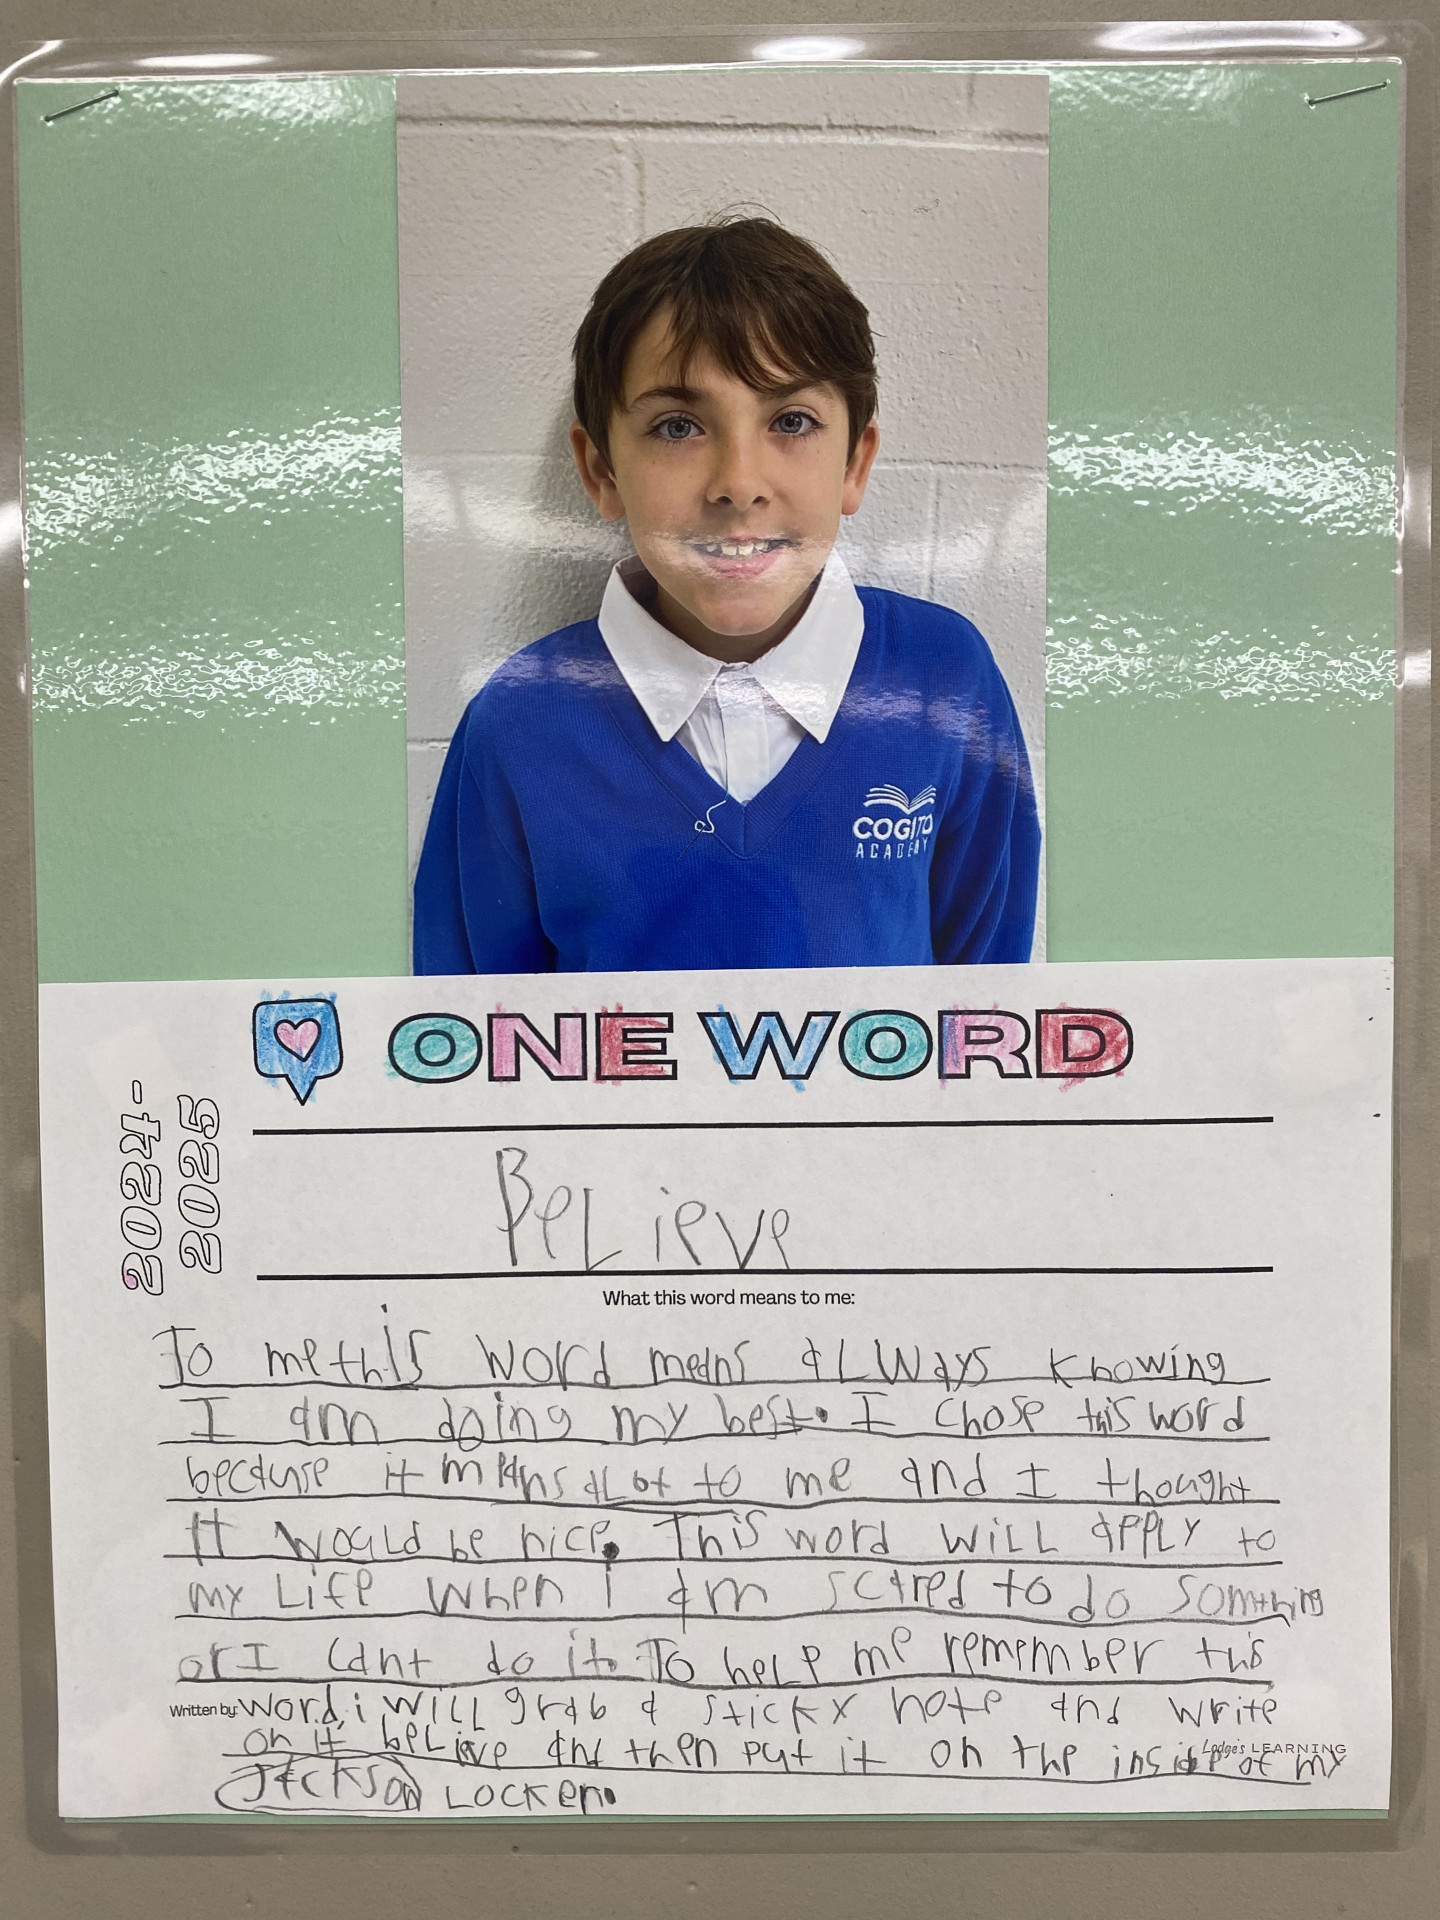 COGITO
ACADEMY
ONE WORD
2024-
2025
BeLieve
What this word means to me:
To me this word means aLways knowing
I am doing my best. I chose this word
because it means aLot to me and I thought
It WouLd be nice. This word wiLL apply to
my Life when i am scared to do somthing
or I cant do it. To heLp me remember this
Written by: word, i wiLL grab a sticky note and write
on it beLieve and then put it on the inside of my
Lodge's LEARNING
Jackson Locker.